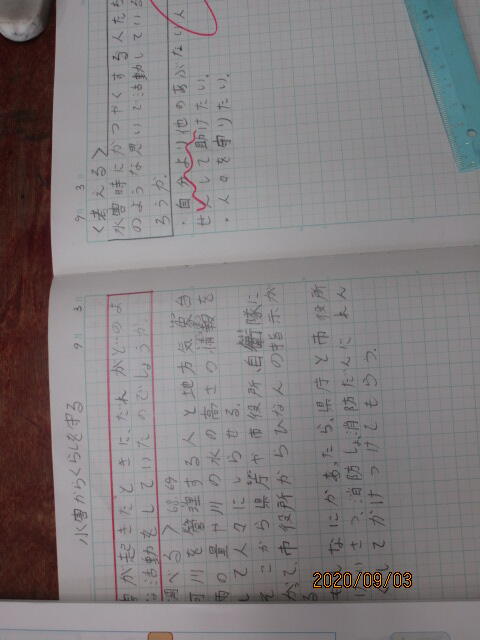 水害からくらしを守る
9 3
が起きたときに、だれがどのよ
活動をしていたのでしょうか。
調べる> 68 69
河川を管理する人と地方気象台
雨の量や川の水の高さの情報を
して人々にしらせる。
そこから県庁や市役所、自衛隊に
がで、市役所からひなんの指示が
る
なにかあったら、県庁と市役所
けいさつ、消防しょ、消防だんに
してかけつけてもらう。
9 3
<考える>
水害時にかつやくする人たち
のような思いで活動している
ろうか。
・自分より他のあぶない人
せんして助けたい。
・人々を守りたい。
2020/09/03